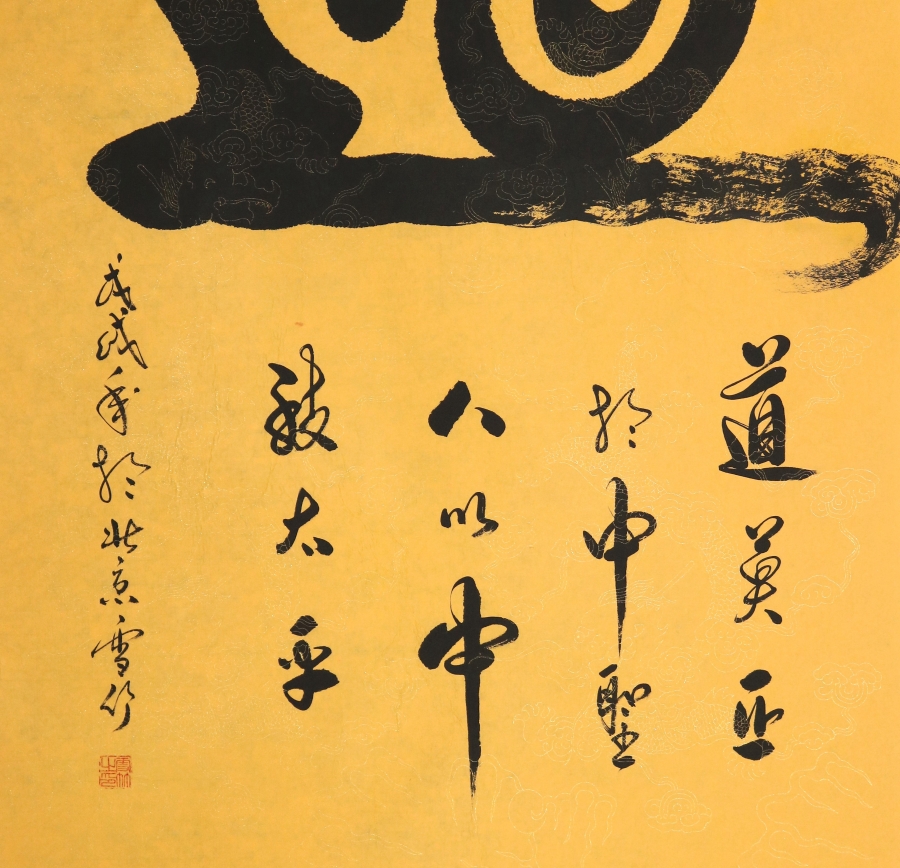 道莫正
於中聖
人以中
致太平
戊戌年於北京雪竹